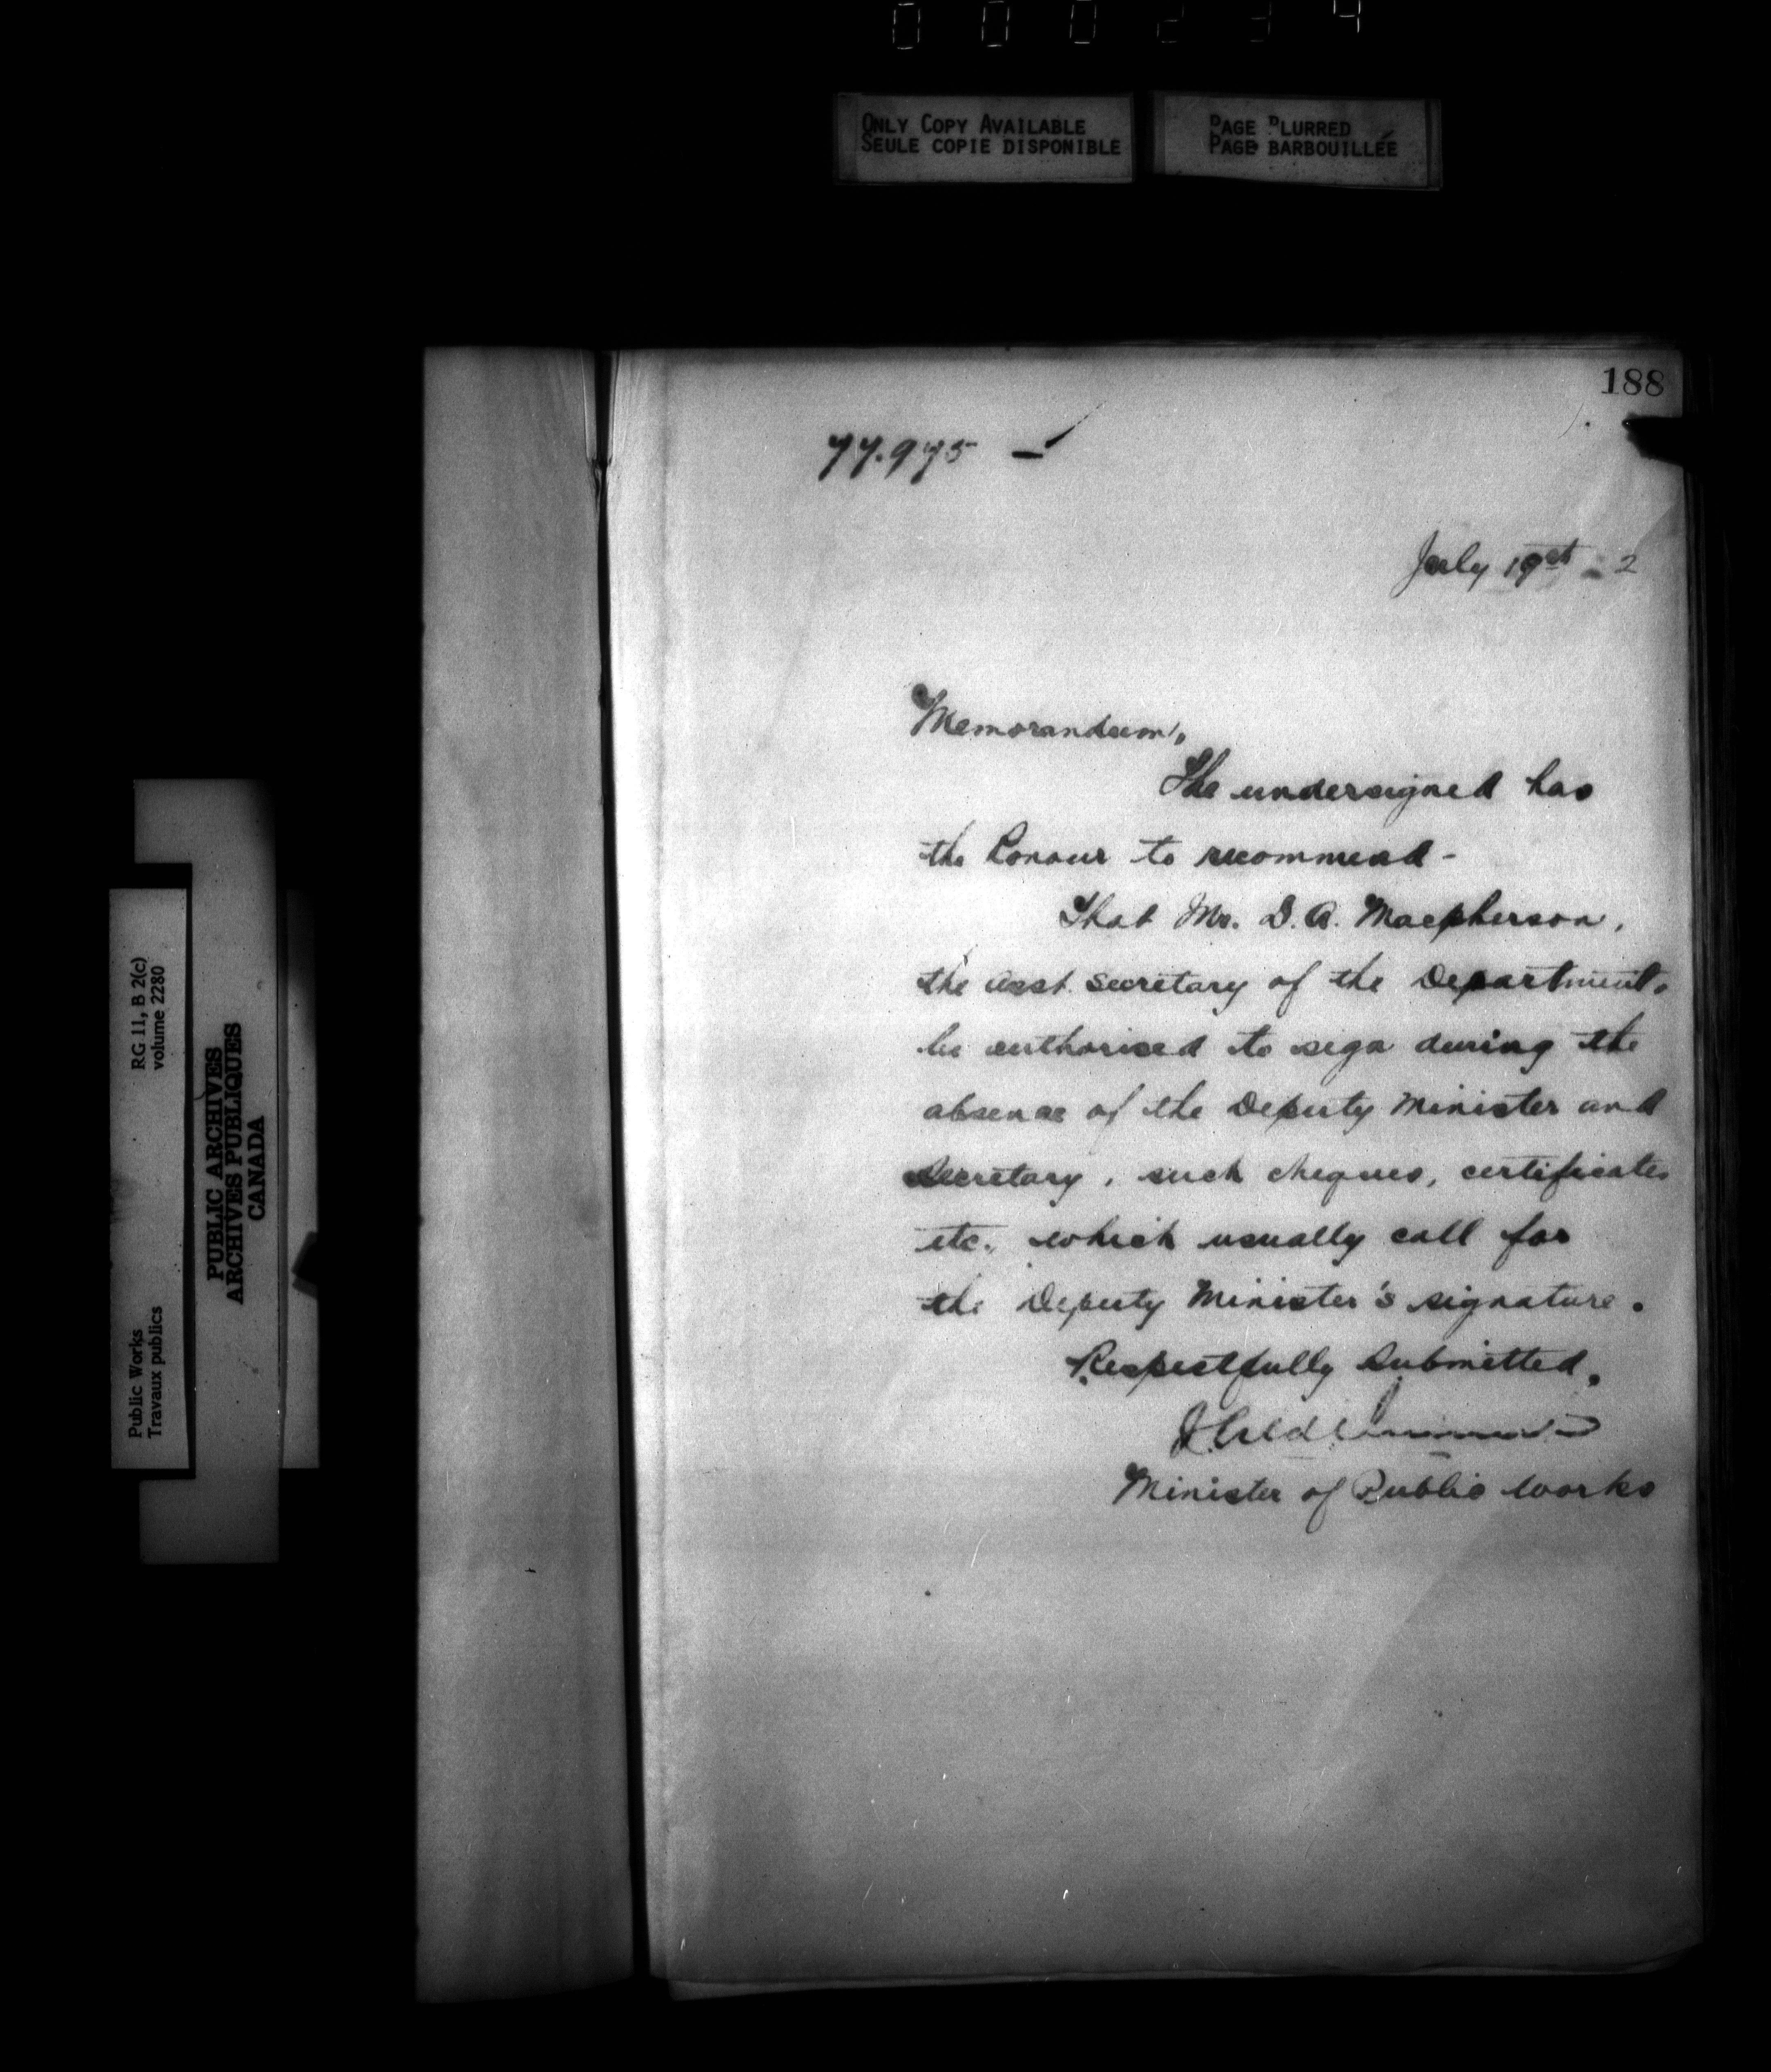 000234
ONLY COPY AVAILABLE
SEULE COPIE DISPONIBLE
PAGE BLURRED
PAGE BARBOUILLÉE
188
77.975 -
July 19 2
Memorandum,
The undersigned has
the honour to recommend -
That Mr. D. A. Macpherson,
the asst. Secretary of the Department,
be authorised to sign during the
absence of the Deputy Minister and
Secretary, such cheques, certificates
etc., which usually call for
the Deputy Minister's signature.
Respectfully Submitted,
Minister of Public Works
RG 11, B 2(c)
volume 2280
Public Works
Travaux publics
PUBLIC ARCHIVES
ARCHIVES PUBLIQUES
CANADA